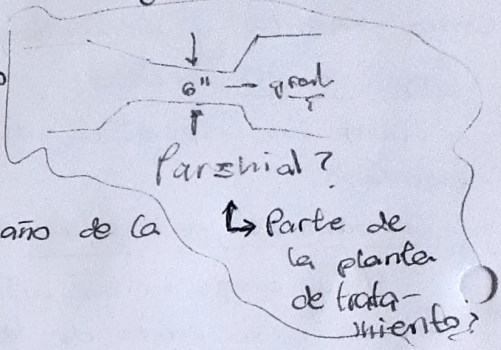 6"
Parshial?
año de la
↳ Parte de
la planta
de trata-
miento?